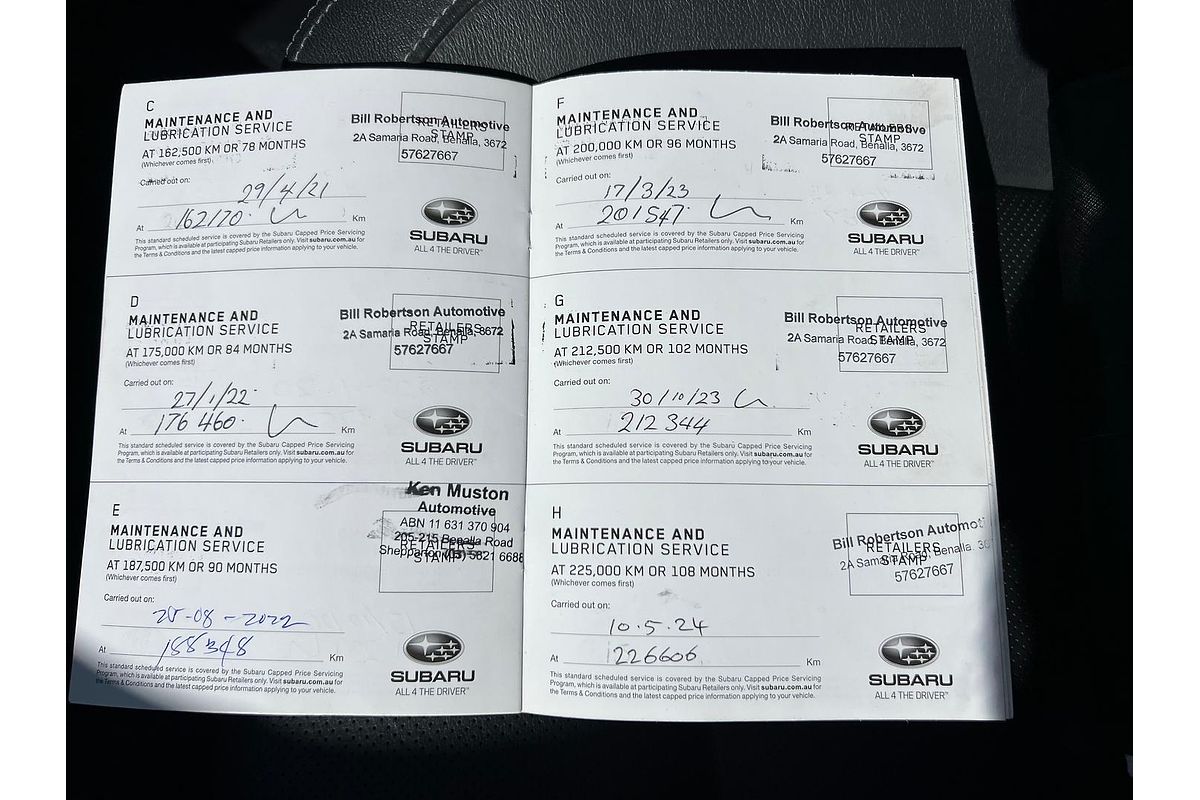 C
MAINTENANCE AND
LUBRICATION SERVICE
AT 162,500 KM OR 78 MONTHS
(Whichever comes first)
RETAILERS
STAMP
Bill Robertson Automotive
2A Samaria Road, Benalla, 3672
57627667
Carried out on:
29/4/21
At 162170 Km
This standard scheduled service is covered by the Subaru Capped Price Servicing
Program, which is available at participating Subaru Retailers only. Visit subaru.com.au for
the Terms & Conditions and the latest capped price information applying to your vehicle.
SUBARU
ALL 4 THE DRIVER™
D
MAINTENANCE AND
LUBRICATION SERVICE
AT 175,000 KM OR 84 MONTHS
(Whichever comes first)
RETAILERS
STAMP
Bill Robertson Automotive
2A Samaria Road, Benalla, 3672
57627667
Carried out on:
27/1/22
At 176460 Km
This standard scheduled service is covered by the Subaru Capped Price Servicing
Program, which is available at participating Subaru Retailers only. Visit subaru.com.au for
the Terms & Conditions and the latest capped price information applying to your vehicle.
SUBARU
ALL 4 THE DRIVER™
E
MAINTENANCE AND
LUBRICATION SERVICE
AT 187,500 KM OR 90 MONTHS
(Whichever comes first)
RETAILERS
STAMP
Ken Muston
Automotive
ABN 11 631 370 904
205-215 Benalla Road
Shepparton (03) 5821 6688
Carried out on:
25-08-2022
At Km
This standard scheduled service is covered by the Subaru Capped Price Servicing
Program, which is available at participating Subaru Retailers only. Visit subaru.com.au for
the Terms & Conditions and the latest capped price information applying to your vehicle.
SUBARU
ALL 4 THE DRIVER™
F
MAINTENANCE AND
LUBRICATION SERVICE
AT 200,000 KM OR 96 MONTHS
(Whichever comes first)
RETAILERS
STAMP
Bill Robertson Automotive
2A Samaria Road, Benalla, 3672
57627667
Carried out on:
17/3/23
At 201547 Km
This standard scheduled service is covered by the Subaru Capped Price Servicing
Program, which is available at participating Subaru Retailers only. Visit subaru.com.au for
the Terms & Conditions and the latest capped price information applying to your vehicle.
SUBARU
ALL 4 THE DRIVER™
G
MAINTENANCE AND
LUBRICATION SERVICE
AT 212,500 KM OR 102 MONTHS
(Whichever comes first)
RETAILERS
STAMP
Bill Robertson Automotive
2A Samaria Road, Benalla, 3672
57627667
Carried out on:
30/10/23
At 212344 Km
This standard scheduled service is covered by the Subaru Capped Price Servicing
Program, which is available at participating Subaru Retailers only. Visit subaru.com.au for
the Terms & Conditions and the latest capped price information applying to your vehicle.
SUBARU
ALL 4 THE DRIVER™
H
MAINTENANCE AND
LUBRICATION SERVICE
AT 225,000 KM OR 108 MONTHS
(Whichever comes first)
RETAILERS
STAMP
Bill Robertson Automot
2A Samaria Road, Benalla, 36
57627667
Carried out on:
10.5.24
At 226606 Km
This standard scheduled service is covered by the Subaru Capped Price Servicing
Program, which is available at participating Subaru Retailers only. Visit subaru.com.au for
the Terms & Conditions and the latest capped price information applying to your vehicle.
SUBARU
ALL 4 THE DRIVER™